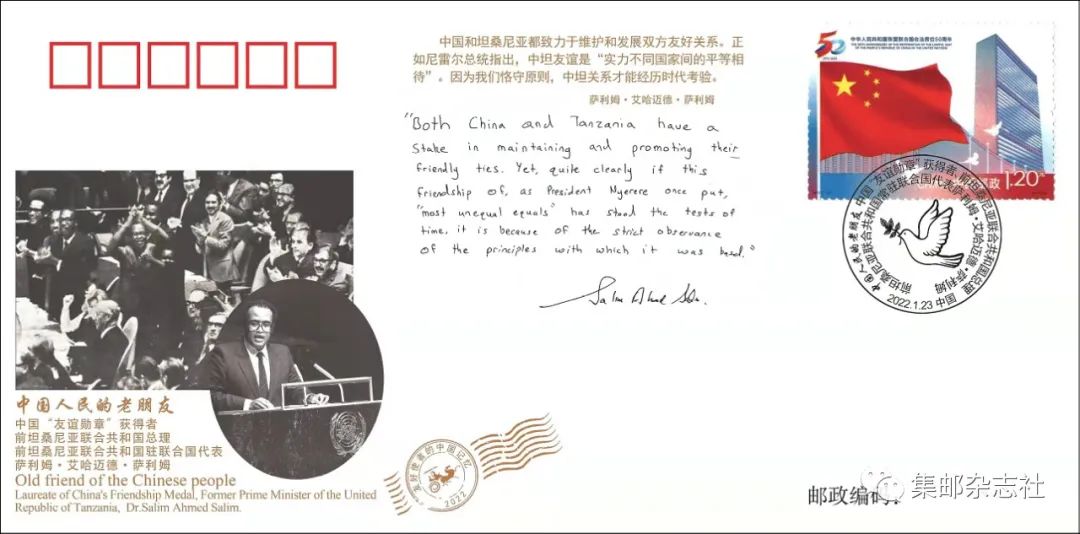 中国和坦桑尼亚都致力于维护和发展双方友好关系。正
如尼雷尔总统指出，中坦友谊是“实力不同国家间的平等相
待”。因为我们恪守原则，中坦关系才能经历时代考验。
萨利姆·艾哈迈德·萨利姆
"Both China and Tanzania have a
Stake in maintaining and promoting their
friendly ties. Yet, quite clearly if this
friendship of, as President Nyerere once put,
"most unequal equals" has stood the tests of
time, it is because of the strict observance
of the principles with which it was based."
Salim Ahmed Salim.
50
中华人民共和国恢复联合国合法席位50周年
THE 50TH ANNIVERSARY OF THE RESTORATION OF THE LAWFUL SEAT
OF THE PEOPLE'S REPUBLIC OF CHINA IN THE UNITED NATIONS
邮政 1.20元
中国人民的老朋友 中国“友谊勋章”获得者、前坦桑尼亚联合共和国总理
前坦桑尼亚联合共和国常驻联合国代表萨利姆·艾哈迈德·萨利姆
2022.1.23 中国
中国人民的老朋友
中国“友谊勋章”获得者
前坦桑尼亚联合共和国总理
前坦桑尼亚联合共和国驻联合国代表
萨利姆·艾哈迈德·萨利姆
Old friend of the Chinese people
Laureate of China's Friendship Medal, Former Prime Minister of the United
Republic of Tanzania, Dr.Salim Ahmed Salim.
友好使者的中国记忆
2022
邮政编码：
集邮杂志社